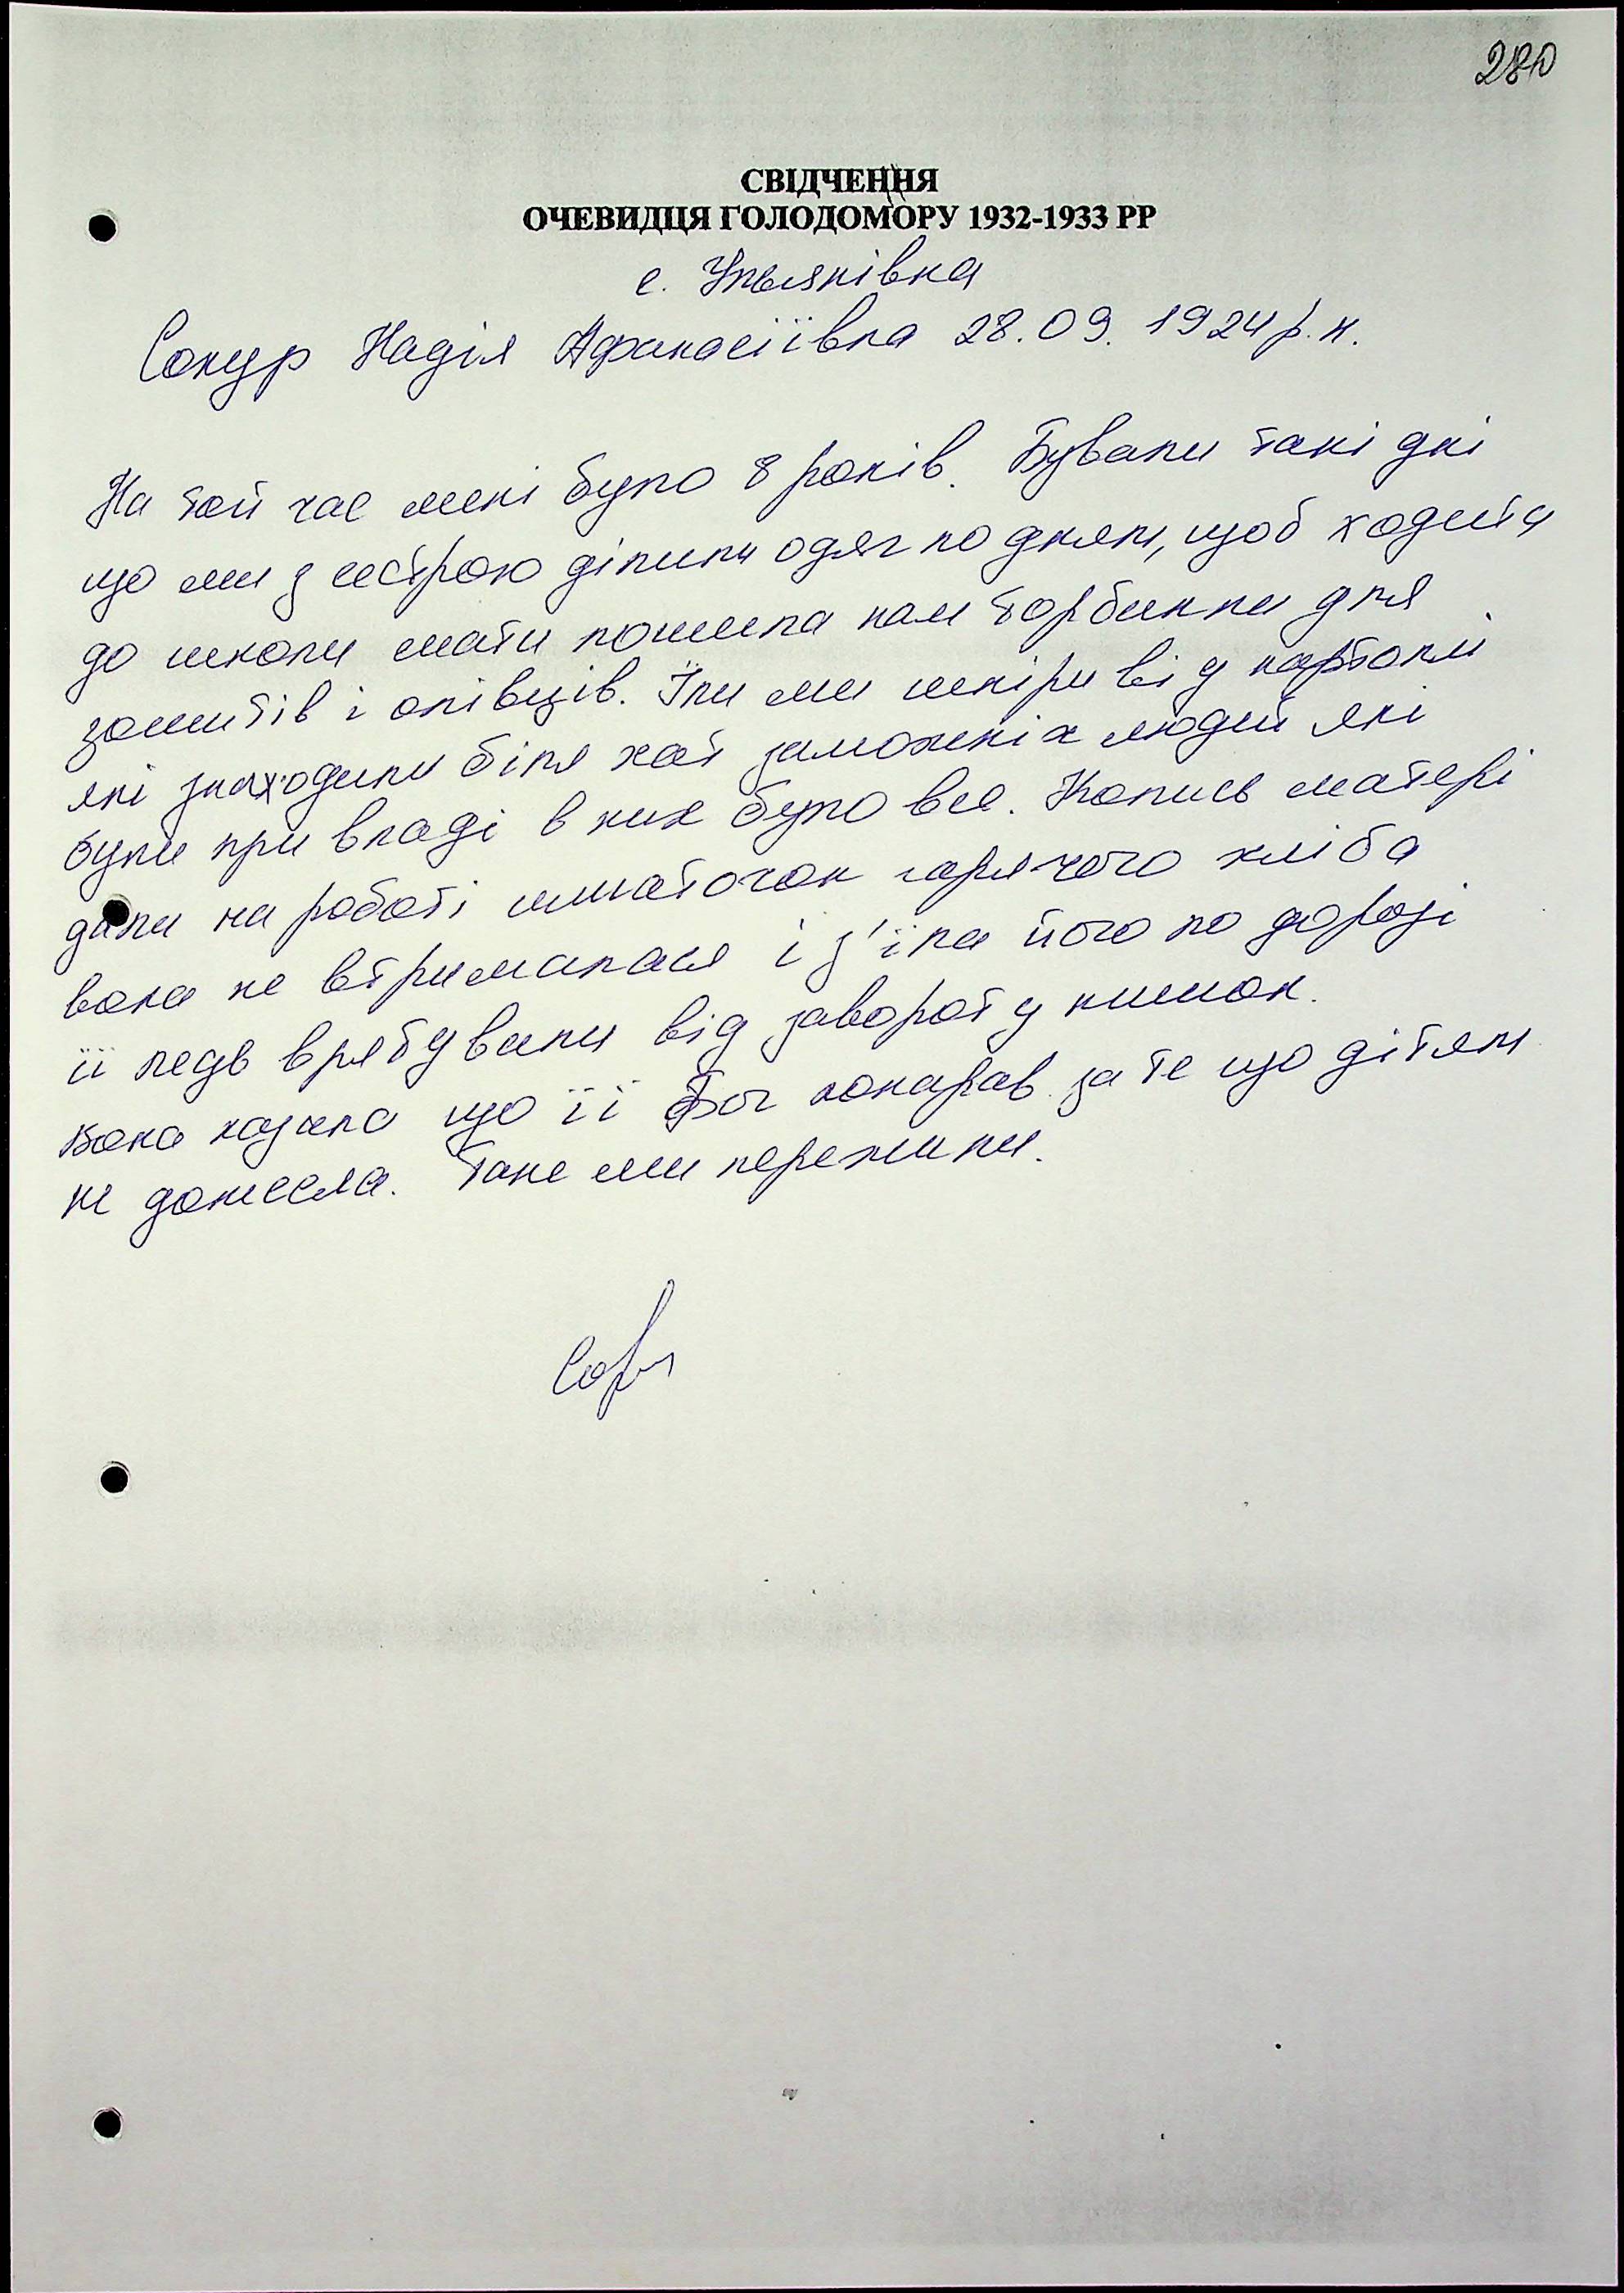 280
СВІДЧЕННЯ
ОЧЕВИДЦЯ ГОЛОДОМОРУ 1932-1933 РР
с. Ульянівка
Сокур Надія Афанасіївна 28.09.1924 р.н.
На той час мені було 8 років. Бували такі дні
що ми з сестрою ділили одяг по дням, щоб ходити
до школи мати пошила нам торбинки для
зошитів і олівців. Їли ми шкіри від картоплі
які знаходили біля хат заможніх людей які
були при владі в них було все. Колись матері
дали на роботі шматочок гарячого хліба
вона не втрималася і з'їла його по дорозі
її ледь врятували від завороту кишок.
Вона казала що її Бог покарав за те що дітям
не донесла. Таке ми пережили.